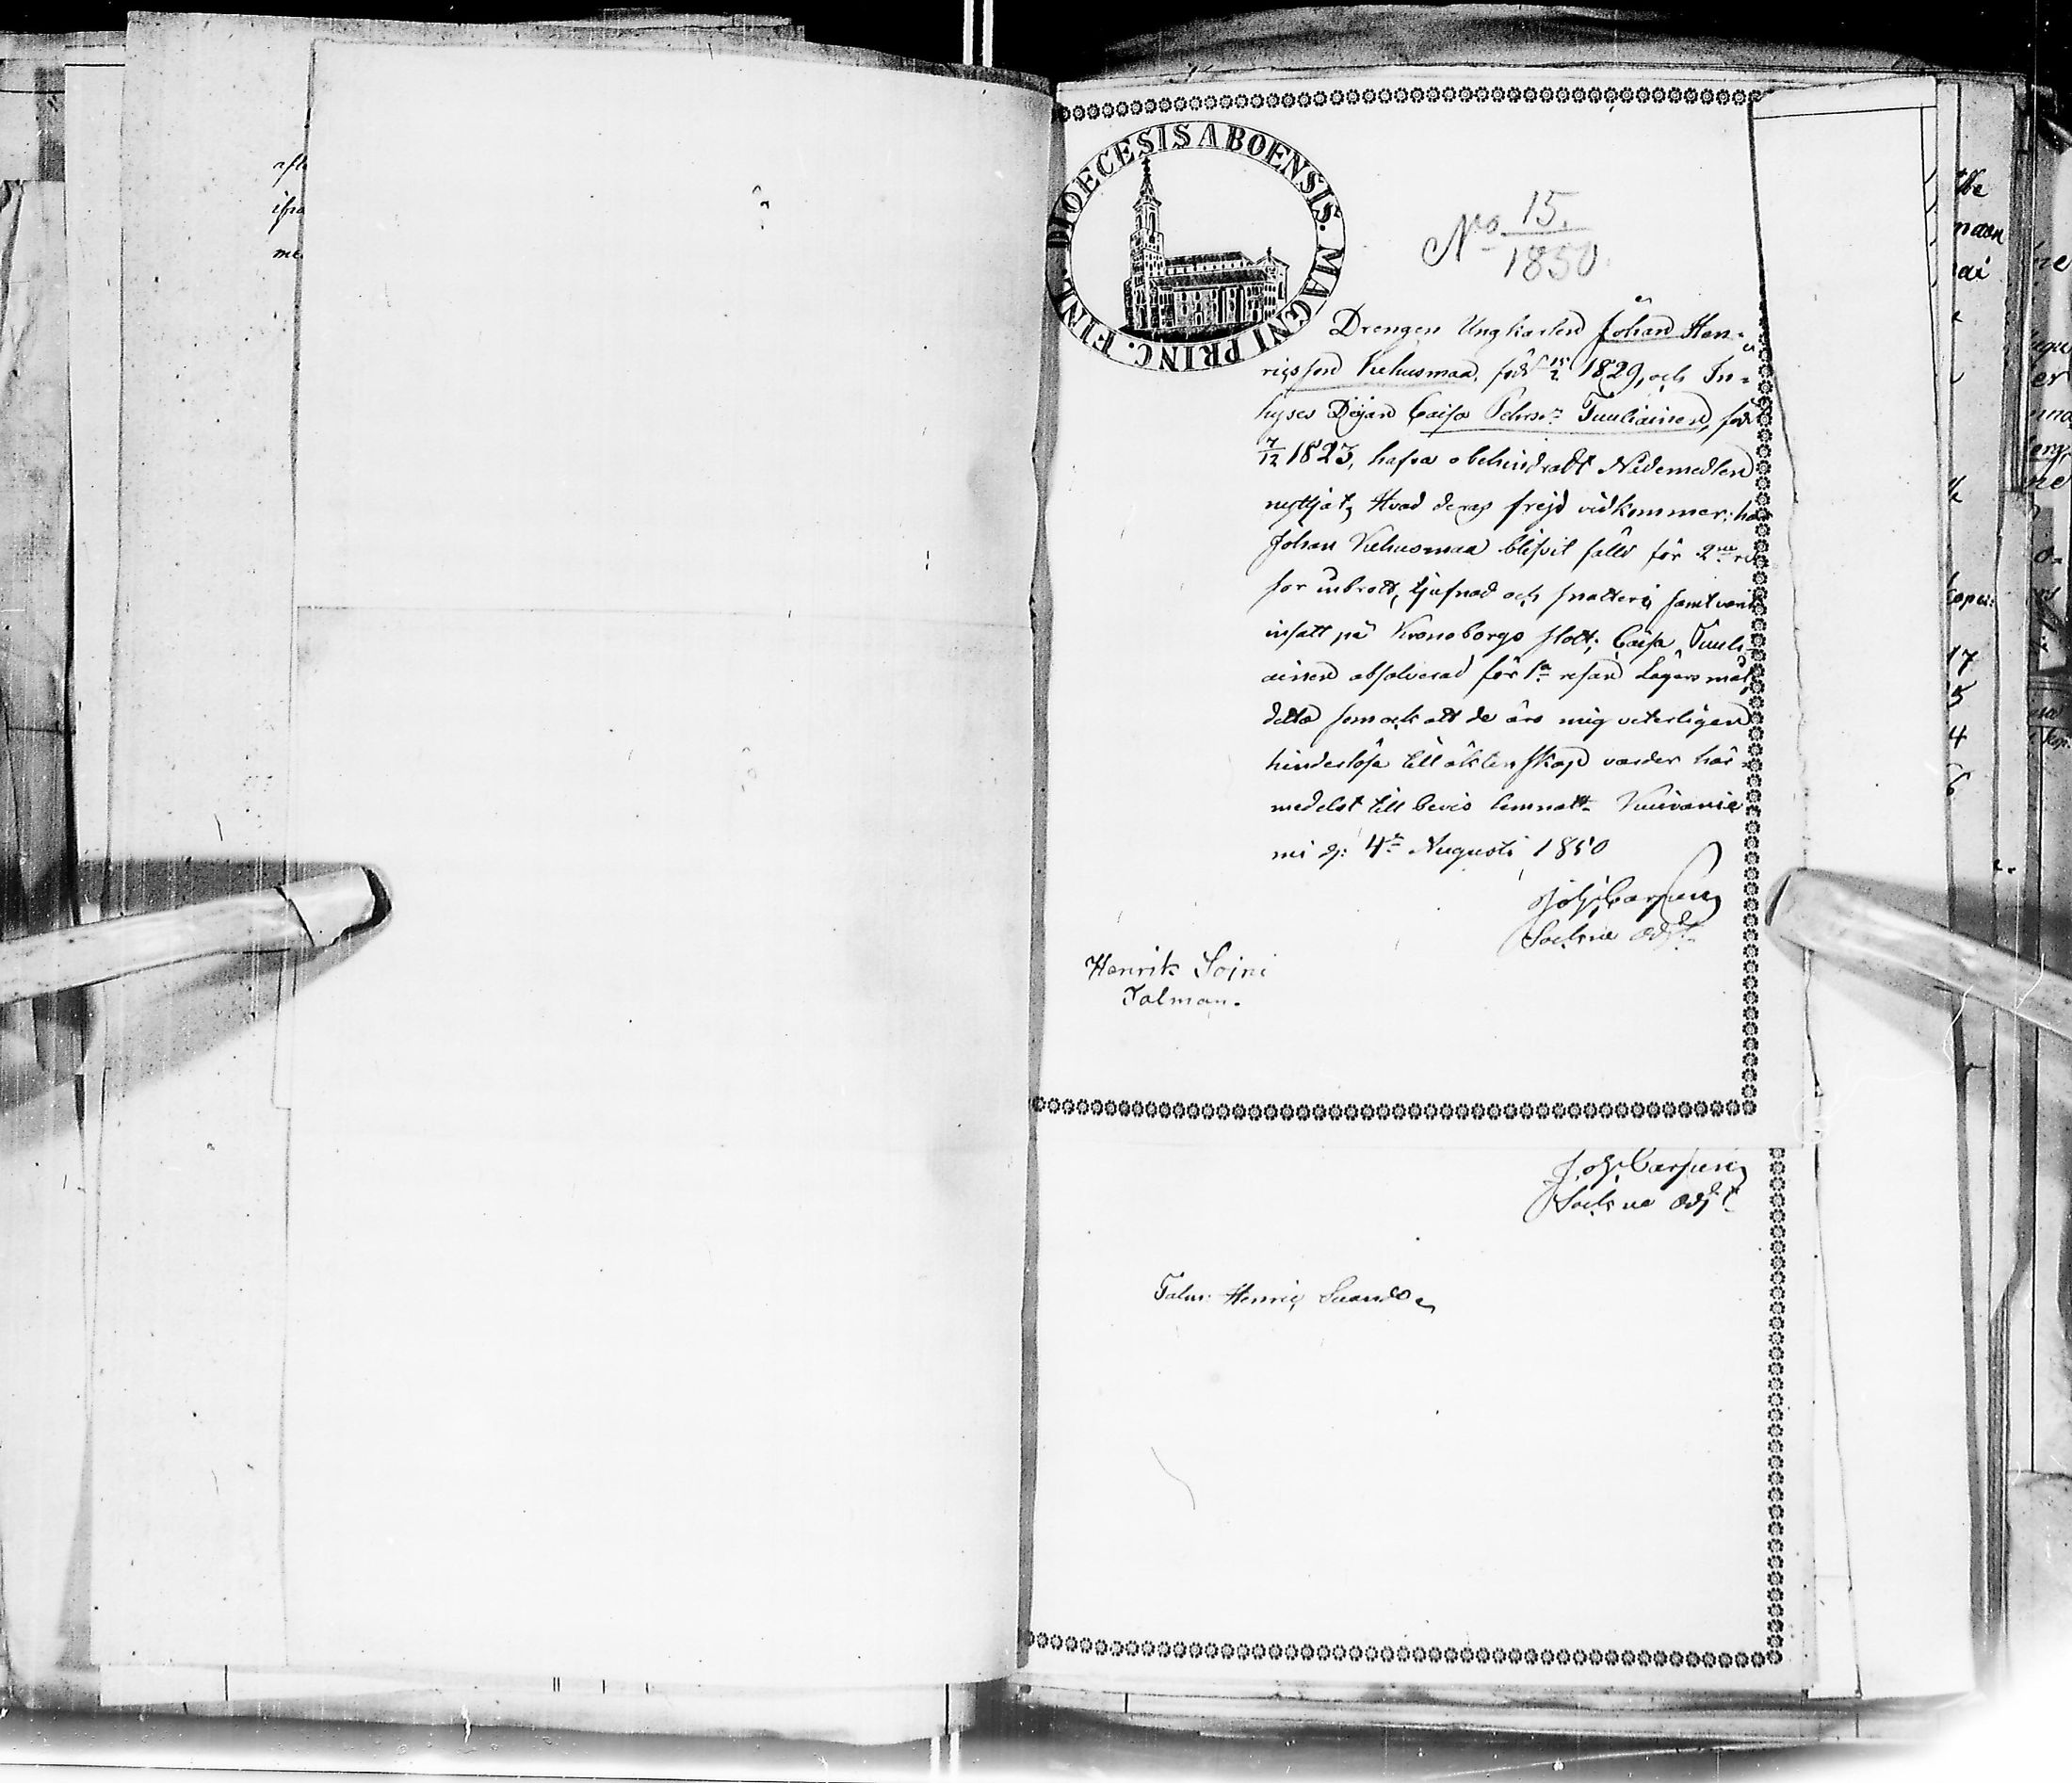 DIOECESIS ABOENSIS. MAGNI PRINC. FINL.
No 15.
1850.
Drengen Ungkarlen Johan Hen-
ricsson Kiehusmaa, född 15/2 1829, och In-
hyses Pigan Caisa Pehrsdr Tuuliainen, född
7/12 1823, hafva obehindradt Nådemedlen
nyttjat, Hvad deras frejd vidkommer: har
Johan Kiehusmaa blifvit fälld för 2ne
för inbrott, tjufnad och snatteri, samt varit
insatt på Kronoborgs slott; Caisa Tuuli-
ainen absolverad för 1a resan Lägersmål,
detta som ock att de äro mig veterligen
hinderlösa till äktenskap varder här-
medelst till bevis lemnadt. Kuivanie-
mi d: 4de Augusti 1850
Joh. Carlsen
Sockne Adjt
Henrik Soini
Talman.
J. oh. Carlsen
Sockne Adjt
Talm: Henric
afte
ifrå
me
17
5
4
6